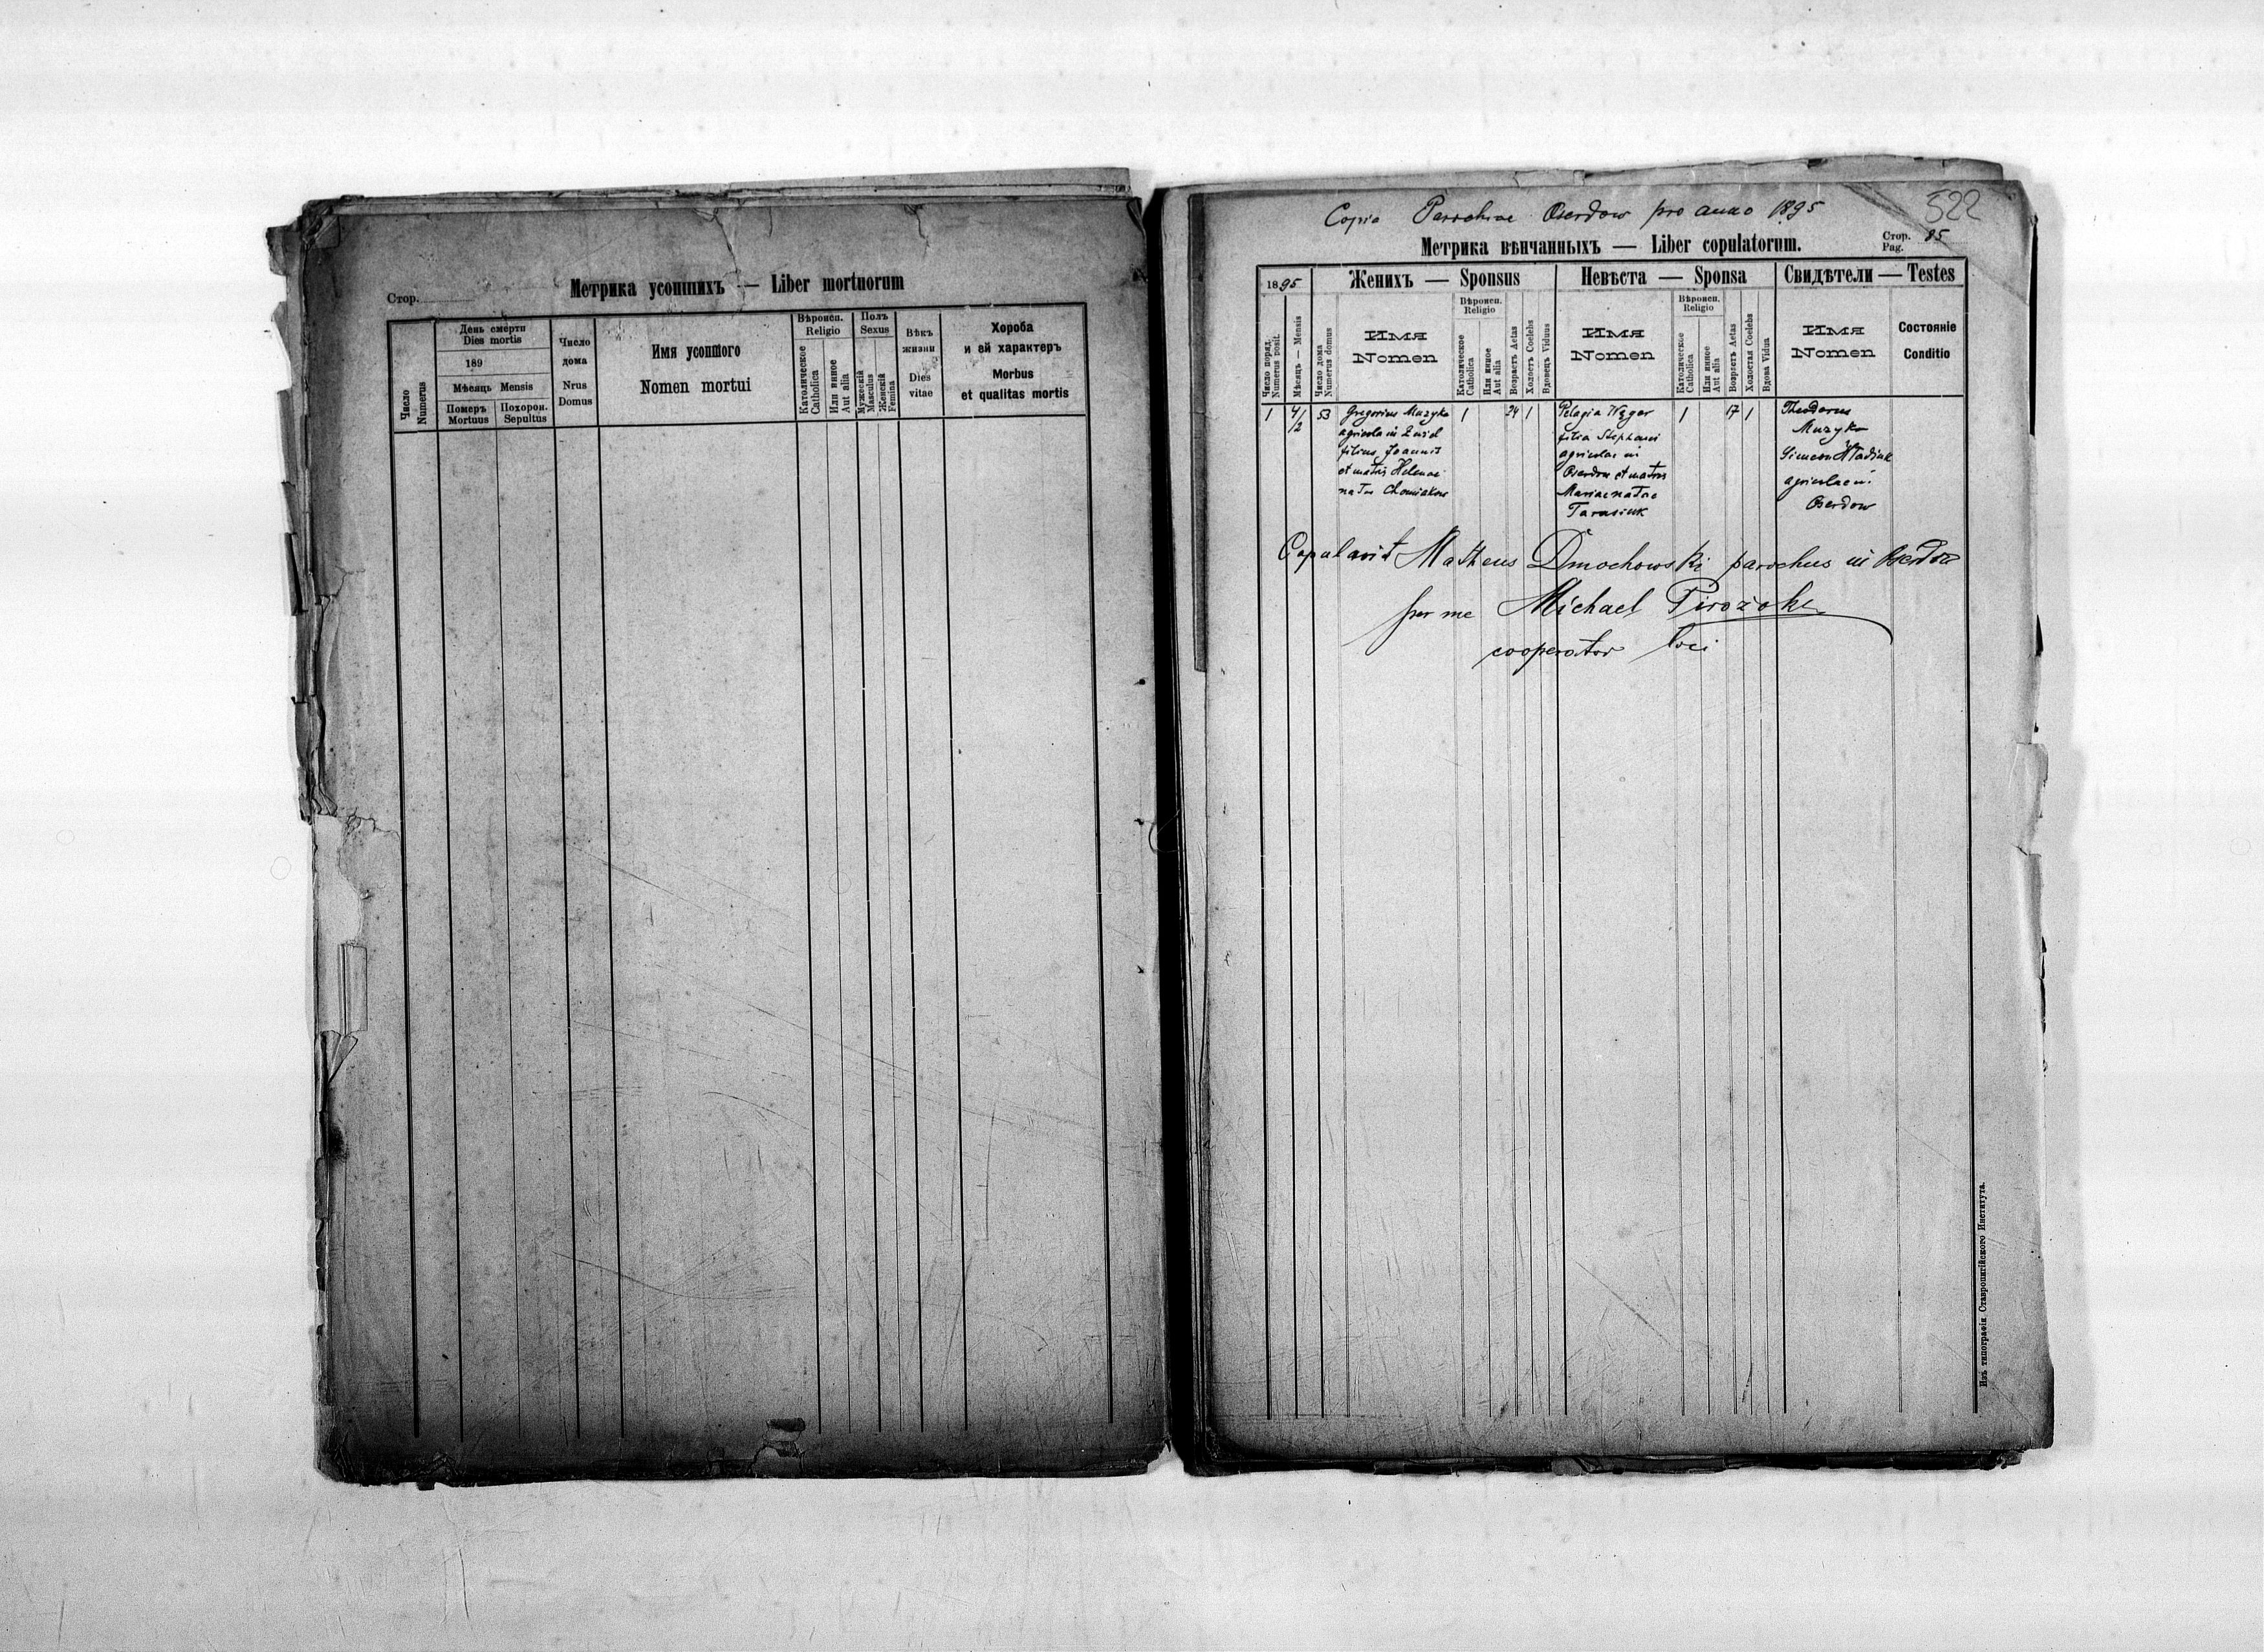 Стор.
Метрика усопшихъ — Liber mortuorum
Число Numerus
День смерти
Dies mortis
189
Мѣсяць Mensis
Померъ Mortuus
Похорон. Sepultus
Число
дома
Nrus
Domus
Имя усопшого
Nomen mortui
Вѣроисп.
Religio
Католическое
Catholica
Или инное
Aut alia
Полъ
Sexus
Мужескій
Masculus
Женскій
Femina
Вѣкъ
жизни
Dies
vitae
Хороба
и ей характеръ
Morbus
et qualitas mortis
Copia Parochiae Oserdow pro anno 1895
522
Метрика вѣнчанныхъ — Liber copulatorum.
Стор.
Pag. 85
1895
Женихъ — Sponsus
Невѣста — Sponsa
Свидѣтели — Testes
Число поряд.
Numerus posit.
Мѣсяцъ — Mensis
Число дома
Numerus domus
Имя
Nomen
Вѣроисп.
Religio
Католическое
Catholica
Или инное
Aut alia
Возрастъ Aetas
Холостъ Coelebs
Вдовецъ Viduus
Имя
Nomen
Вѣроисп.
Religio
Католическое
Catholica
Или инное
Aut alia
Возрастъ Aetas
Холостая Coelebs
Вдова Vidua
Имя
Nomen
Состояніе
Conditio
1
4/2
53
Gregorius Muzyka
agricola in
filius Joannis
et matris Helenae
natae Chomiakow
1
24
1
Pelagia
filia Stephani
agricolae in
Oserdow et matris
Mariae natae
Tarasiuk
1
17
1
Theodorus
Muzyka
Simeon Hladiuk
agricolae in
Oserdow
Copulavit Matheus Dmochowski parochus in Oserdow
per me Michael
cooperator loci
Изъ типографіи Ставропигійского Института.